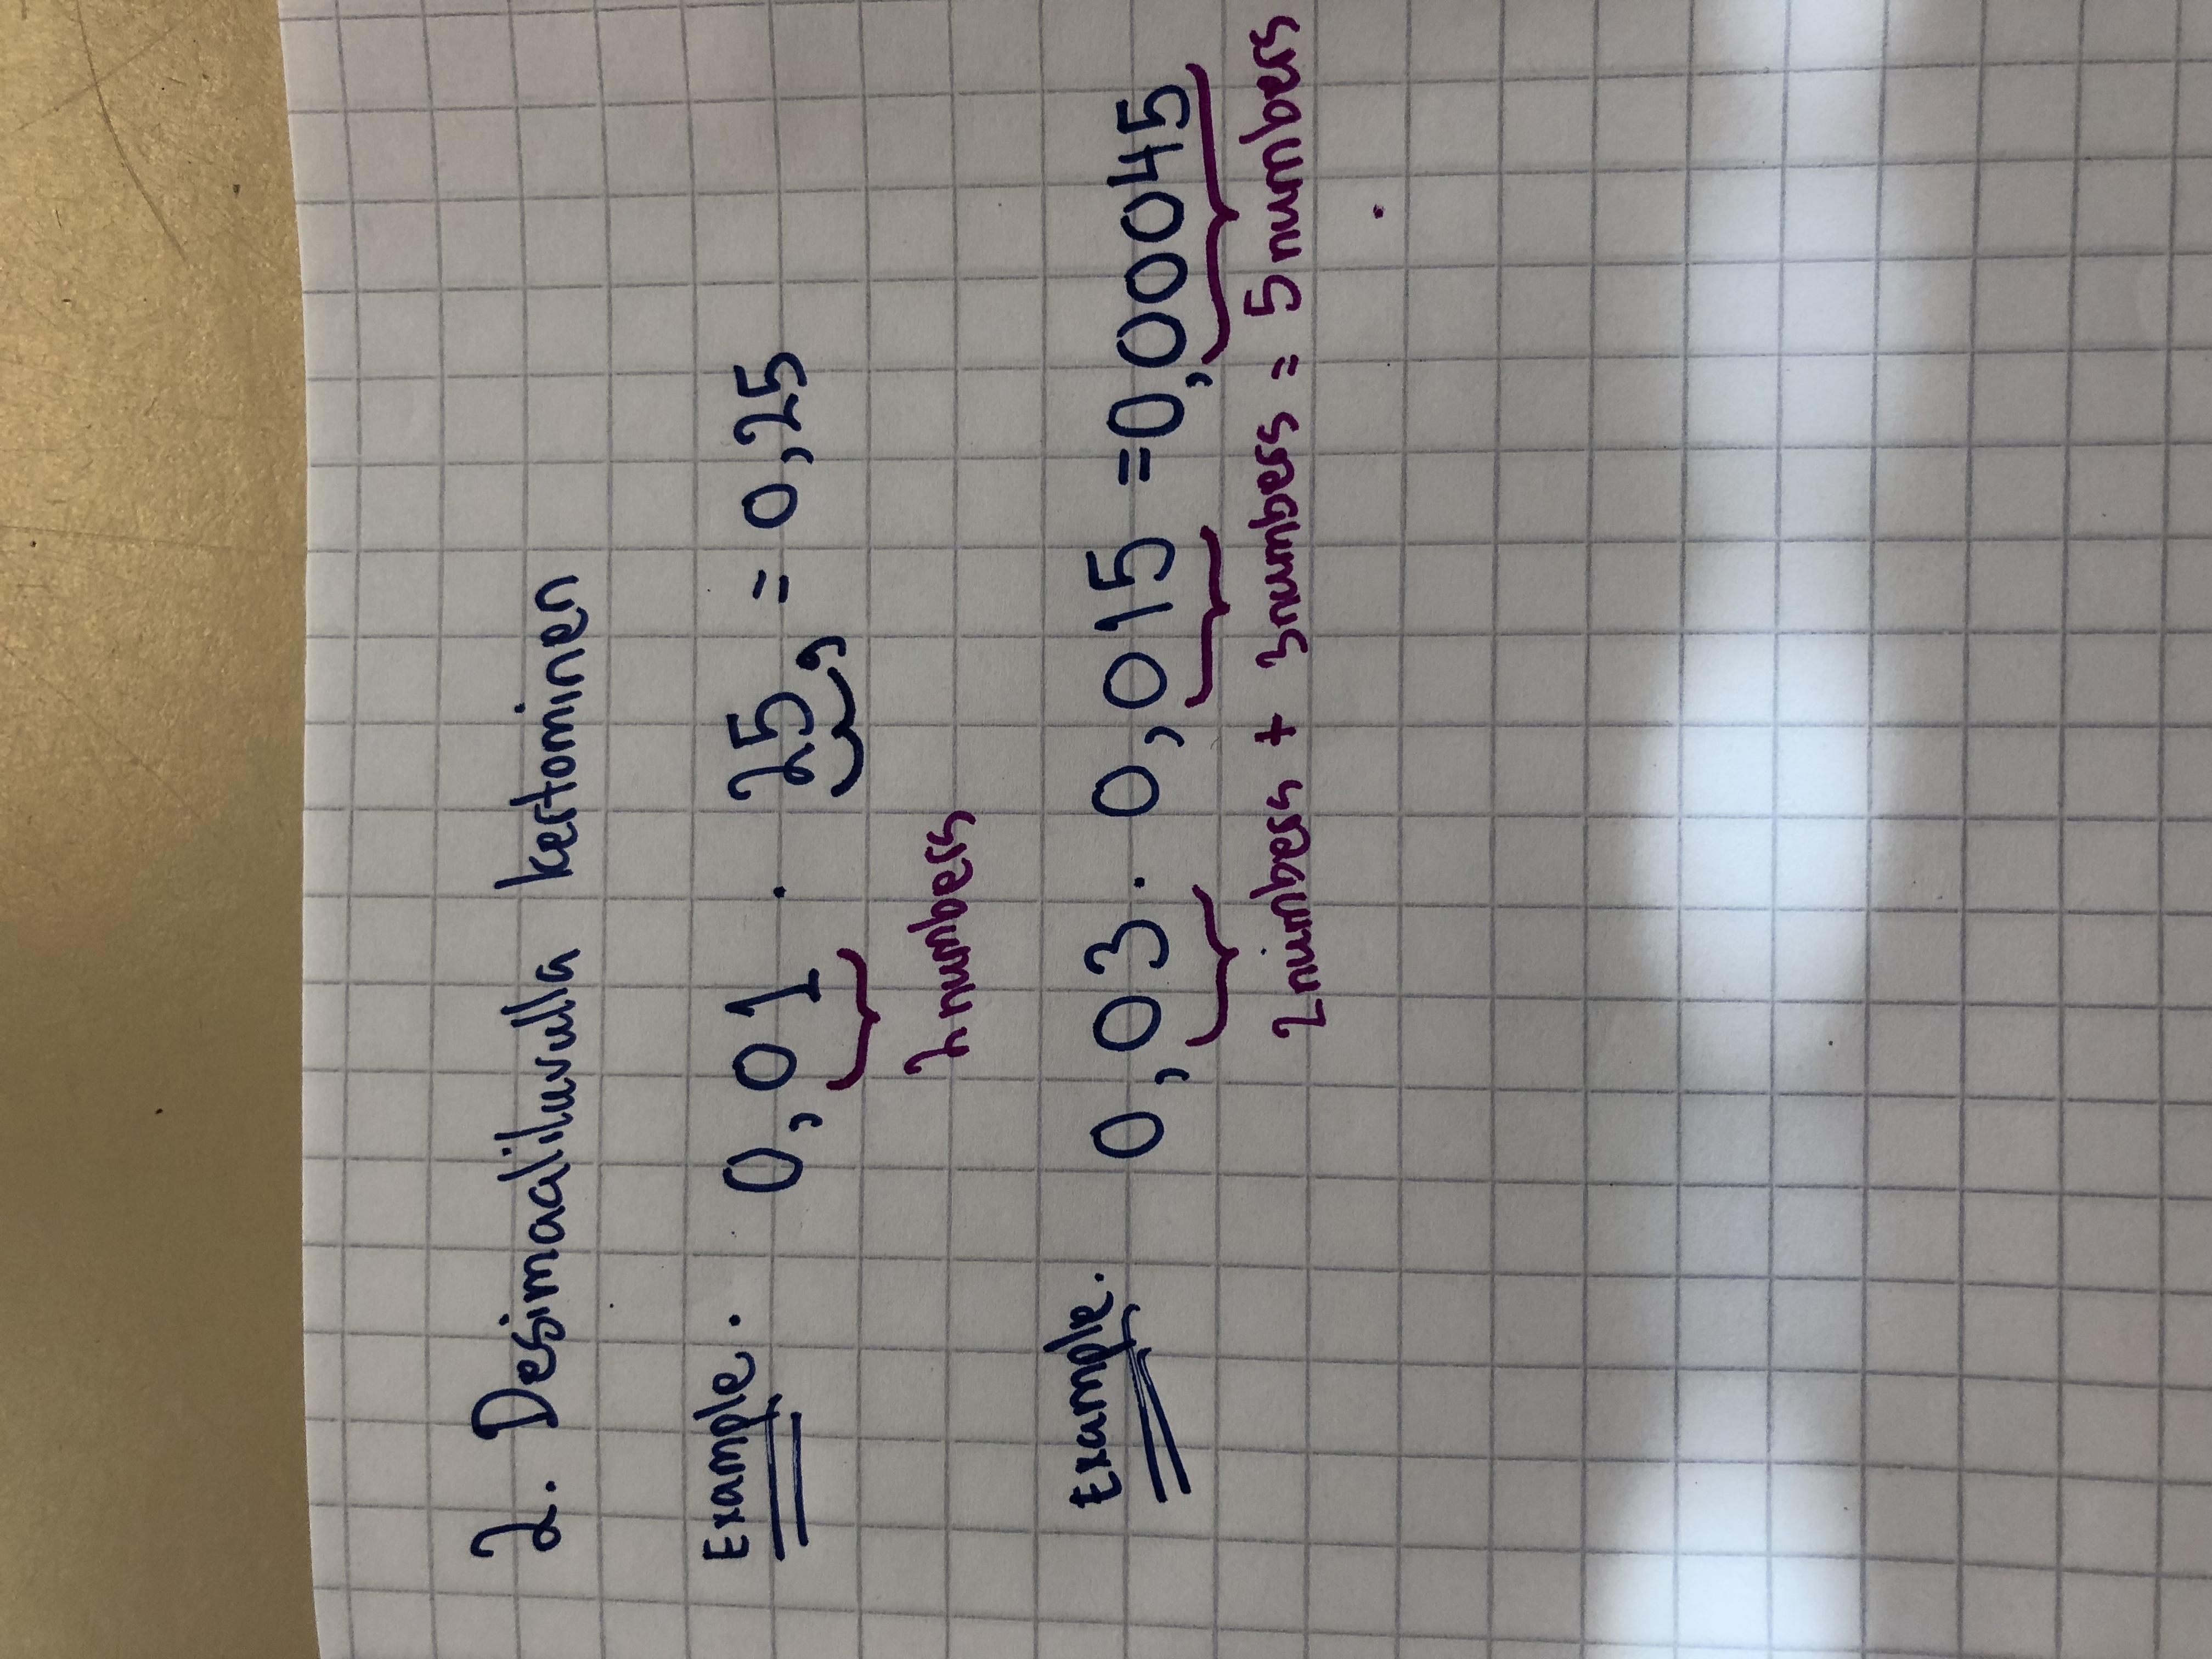 2. Desimaaliluvulla kertominen
Example. 0,01 · 25, = 0,25
2 numbers
Example. 0,03 · 0,015 = 0,00045
2 numbers + 3 numbers = 5 numbers